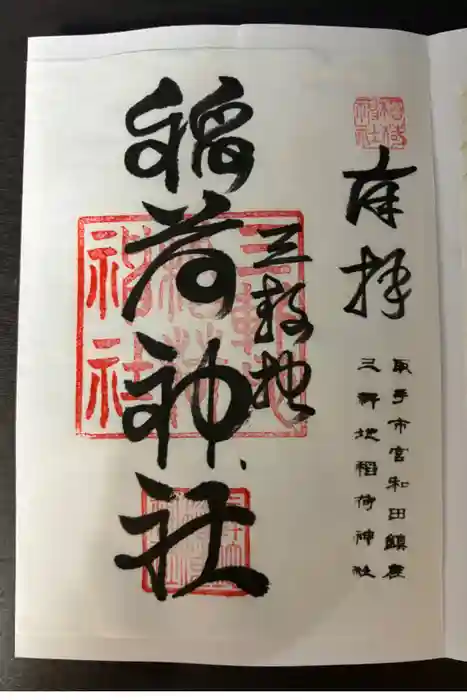 稲荷神社
奉拝
取手市宮和田鎮座
三軒地稲荷神社
三軒地
稲荷神社